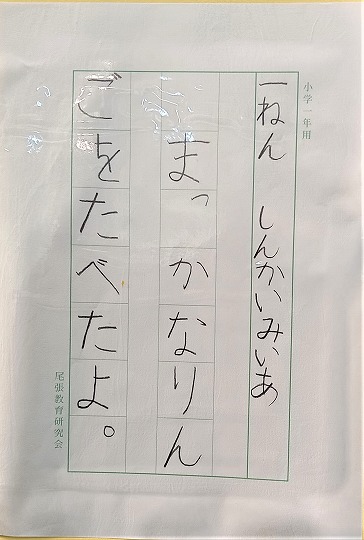 小学一年用
一ねん しんかいみいあ
まっかなりん
ごをたべたよ。
尾張教育研究会